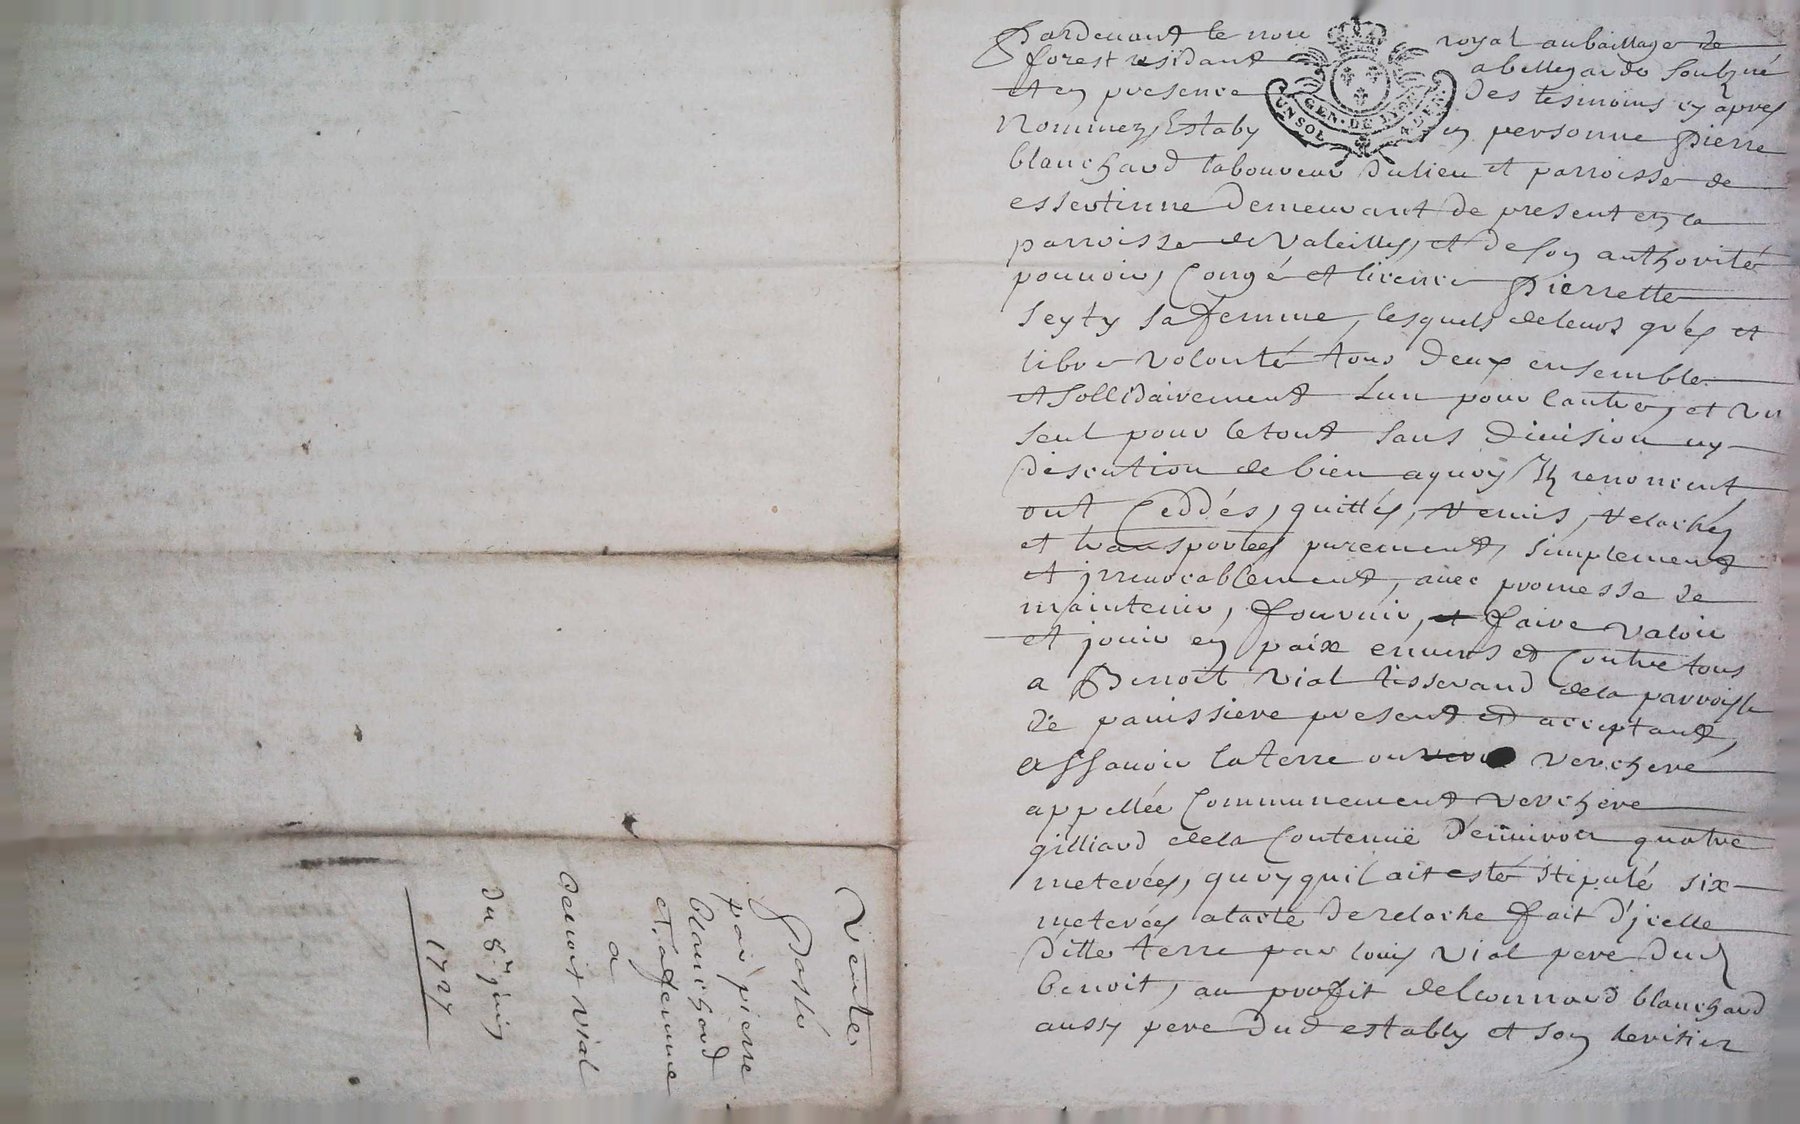 Pardeuant le nore royal au bailliage de
forest residant a bellegarde soubzné
et en presence des tesmoins cy apres
Nommez, Estably en personne Pierre
blanchard laboureur du lieu et parroisse de
essertinne demeurant de present en la
parroisse de valeille, et de son authorité
pouuoir, Congé et licence Pierrette
seyty sa femme, lesquels de leurs grés et
libre volonté tous deux ensemble
et sollidairement Lun pour lautre, et un
seul pour le tout sans diuision ny
discution de bien a quoy Ilz renoncent
ont Ceddés, quittés, remis, relachés
et transportés purement, simplement
et jrreuocablement, auec promesse de
maintenir, fournir, et faire valoir
et jouir en paix enuers et Contre tous
a Benoit vial tisserand de la parroisse
de panissiere present et acceptant,
assauoir la terre ou verchere
appellée Communement verchere
gilliard de la Contenuë d'enuiron quatre
meterées, quoyquil ait esté stipulé six
meterées a lacte de relache fait d'jcelle
ditte terre par louis vial pere dud
benoit, au proffit de leonnard blanchard
aussy pere dud estably et son heritier
Vente
Passé
par pierre
blanchard
et sa femme
a
benoit vial
du 8e juin
1727
GEN. DE LYON
UN SOL 4 DEN